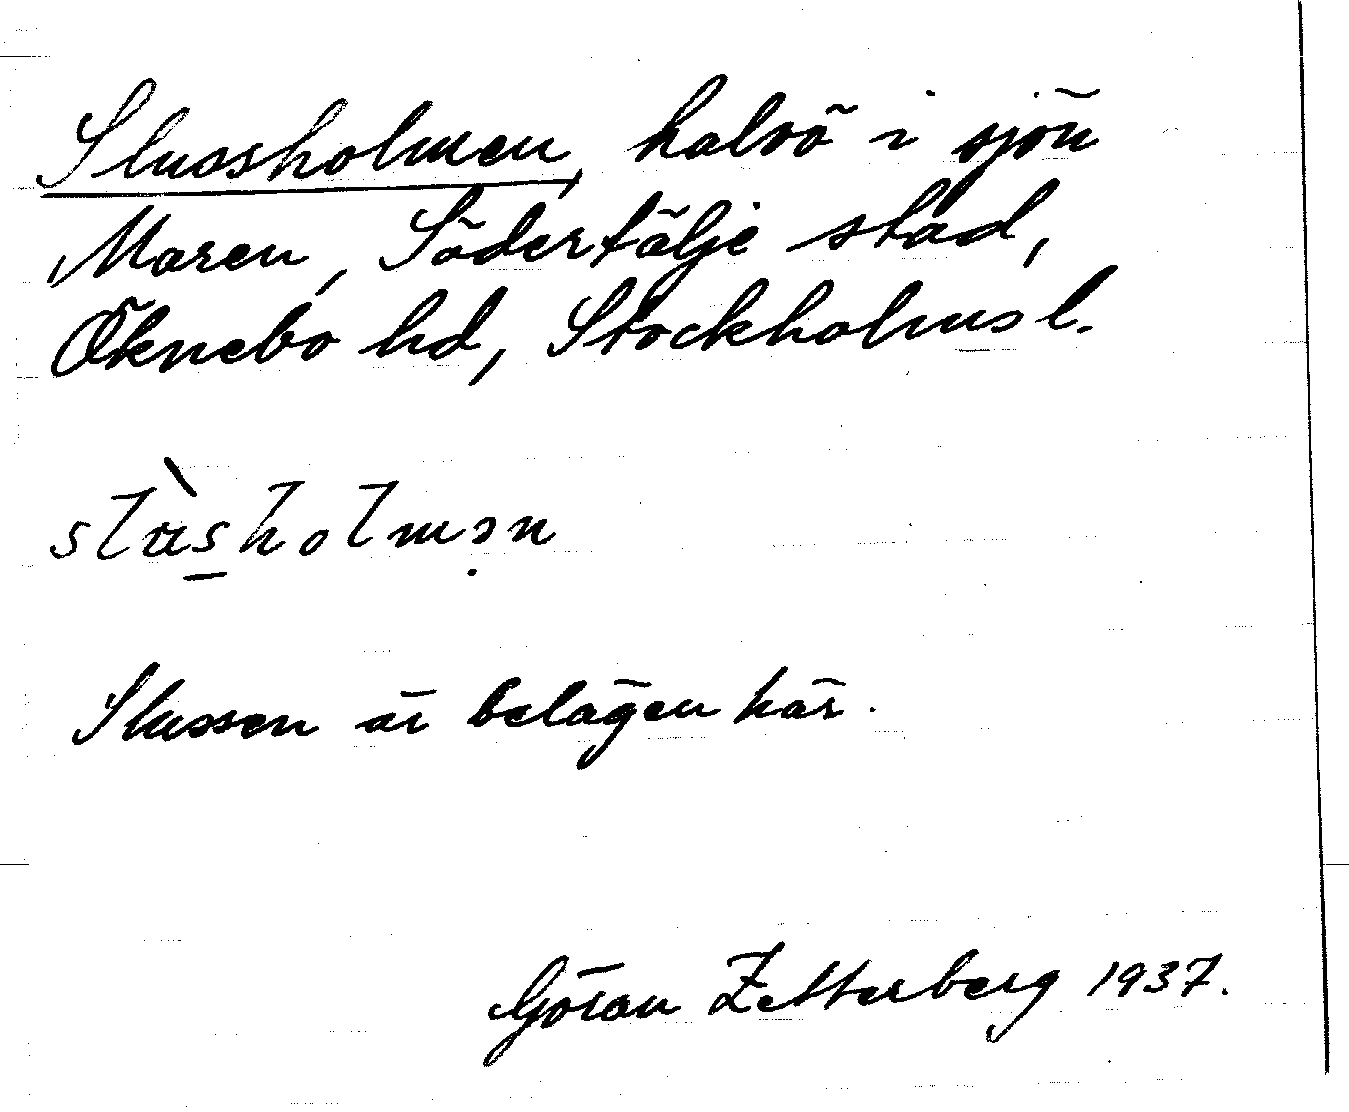 Slussholmen, halvö i sjön
Maren, Södertälje stad,
Öknebo hd, Stockholms l.
slùsholmən
Slussen är belägen här.
Göran Zetterberg 1937.